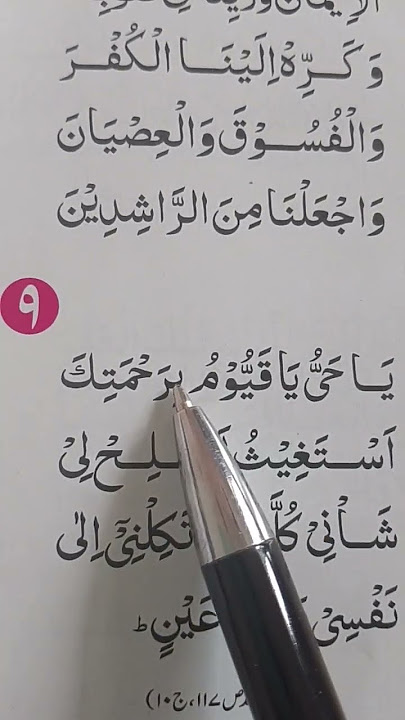 وَكَرِّهْ اِلَيْنَا الْكُفْرَ
وَالْفُسُوْقَ وَالْعِصْيَانَ
وَاجْعَلْنَا مِنَ الرَّاشِدِيْنَ
۹
يَا حَيُّ يَا قَيُّوْمُ بِرَحْمَتِكَ
اَسْتَغِيْثُ لِيْ
شَأْنِيْ اِلٰى
نَفْسِيْ عَيْنٍ ط
ص ۱۱۷، ج ۱۰)